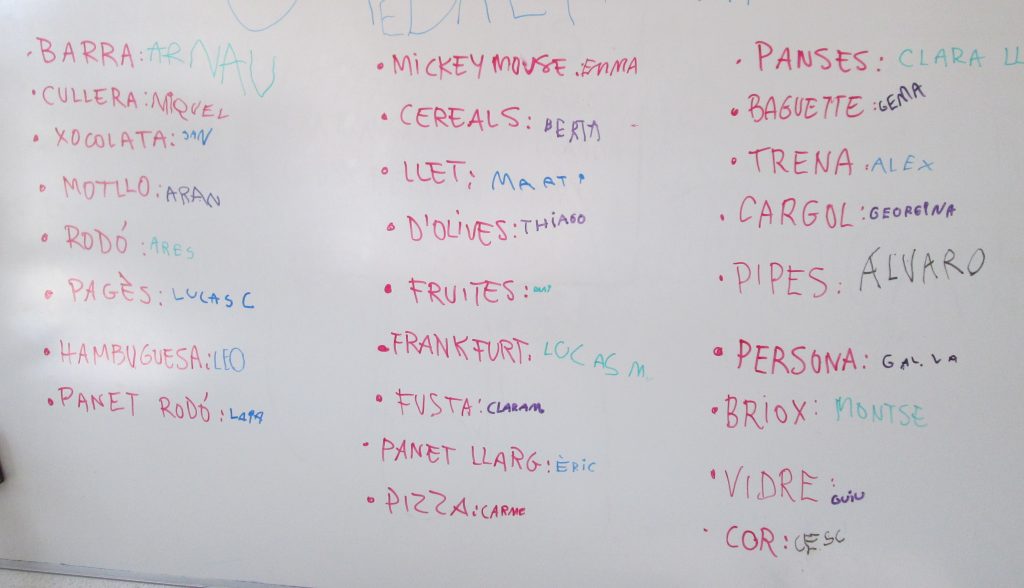 BARRA: ARNAU
CULLERA: MIQUEL
XOCOLATA: JAN
MOTLLO: ARAN
RODÓ: ARES
PAGÈS: LUCAS C
HAMBUGUESA: LEO
PANET RODÓ: LARA
MICKEY MOUSE: EMMA
CEREALS: BERTA
LLET: MARTI
D'OLIVES: THIAGO
FRUITES:
FRANKFURT: LUCAS M.
FUSTA: CLARA M
PANET LLARG: ÈRIC
PIZZA: CARME
PANSES: CLARA LL
BAGUETTE: GEMA
TRENA: ALEX
CARGOL: GEORGINA
PIPES: ÁLVARO
PERSONA:
BRIOX: MONTSE
VIDRE: GUIU
COR: CESC